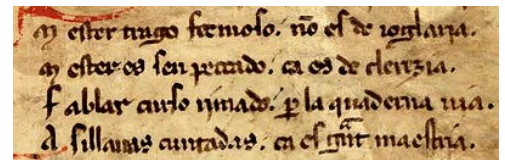 M ester trago fermoso. nõ es de ioglaria.
M ester es sen peccado. ca es de clerezia.
F ablar curso rimado. p la quaderna uia.
A sillauas cuntadas. ca es grãt maestria.